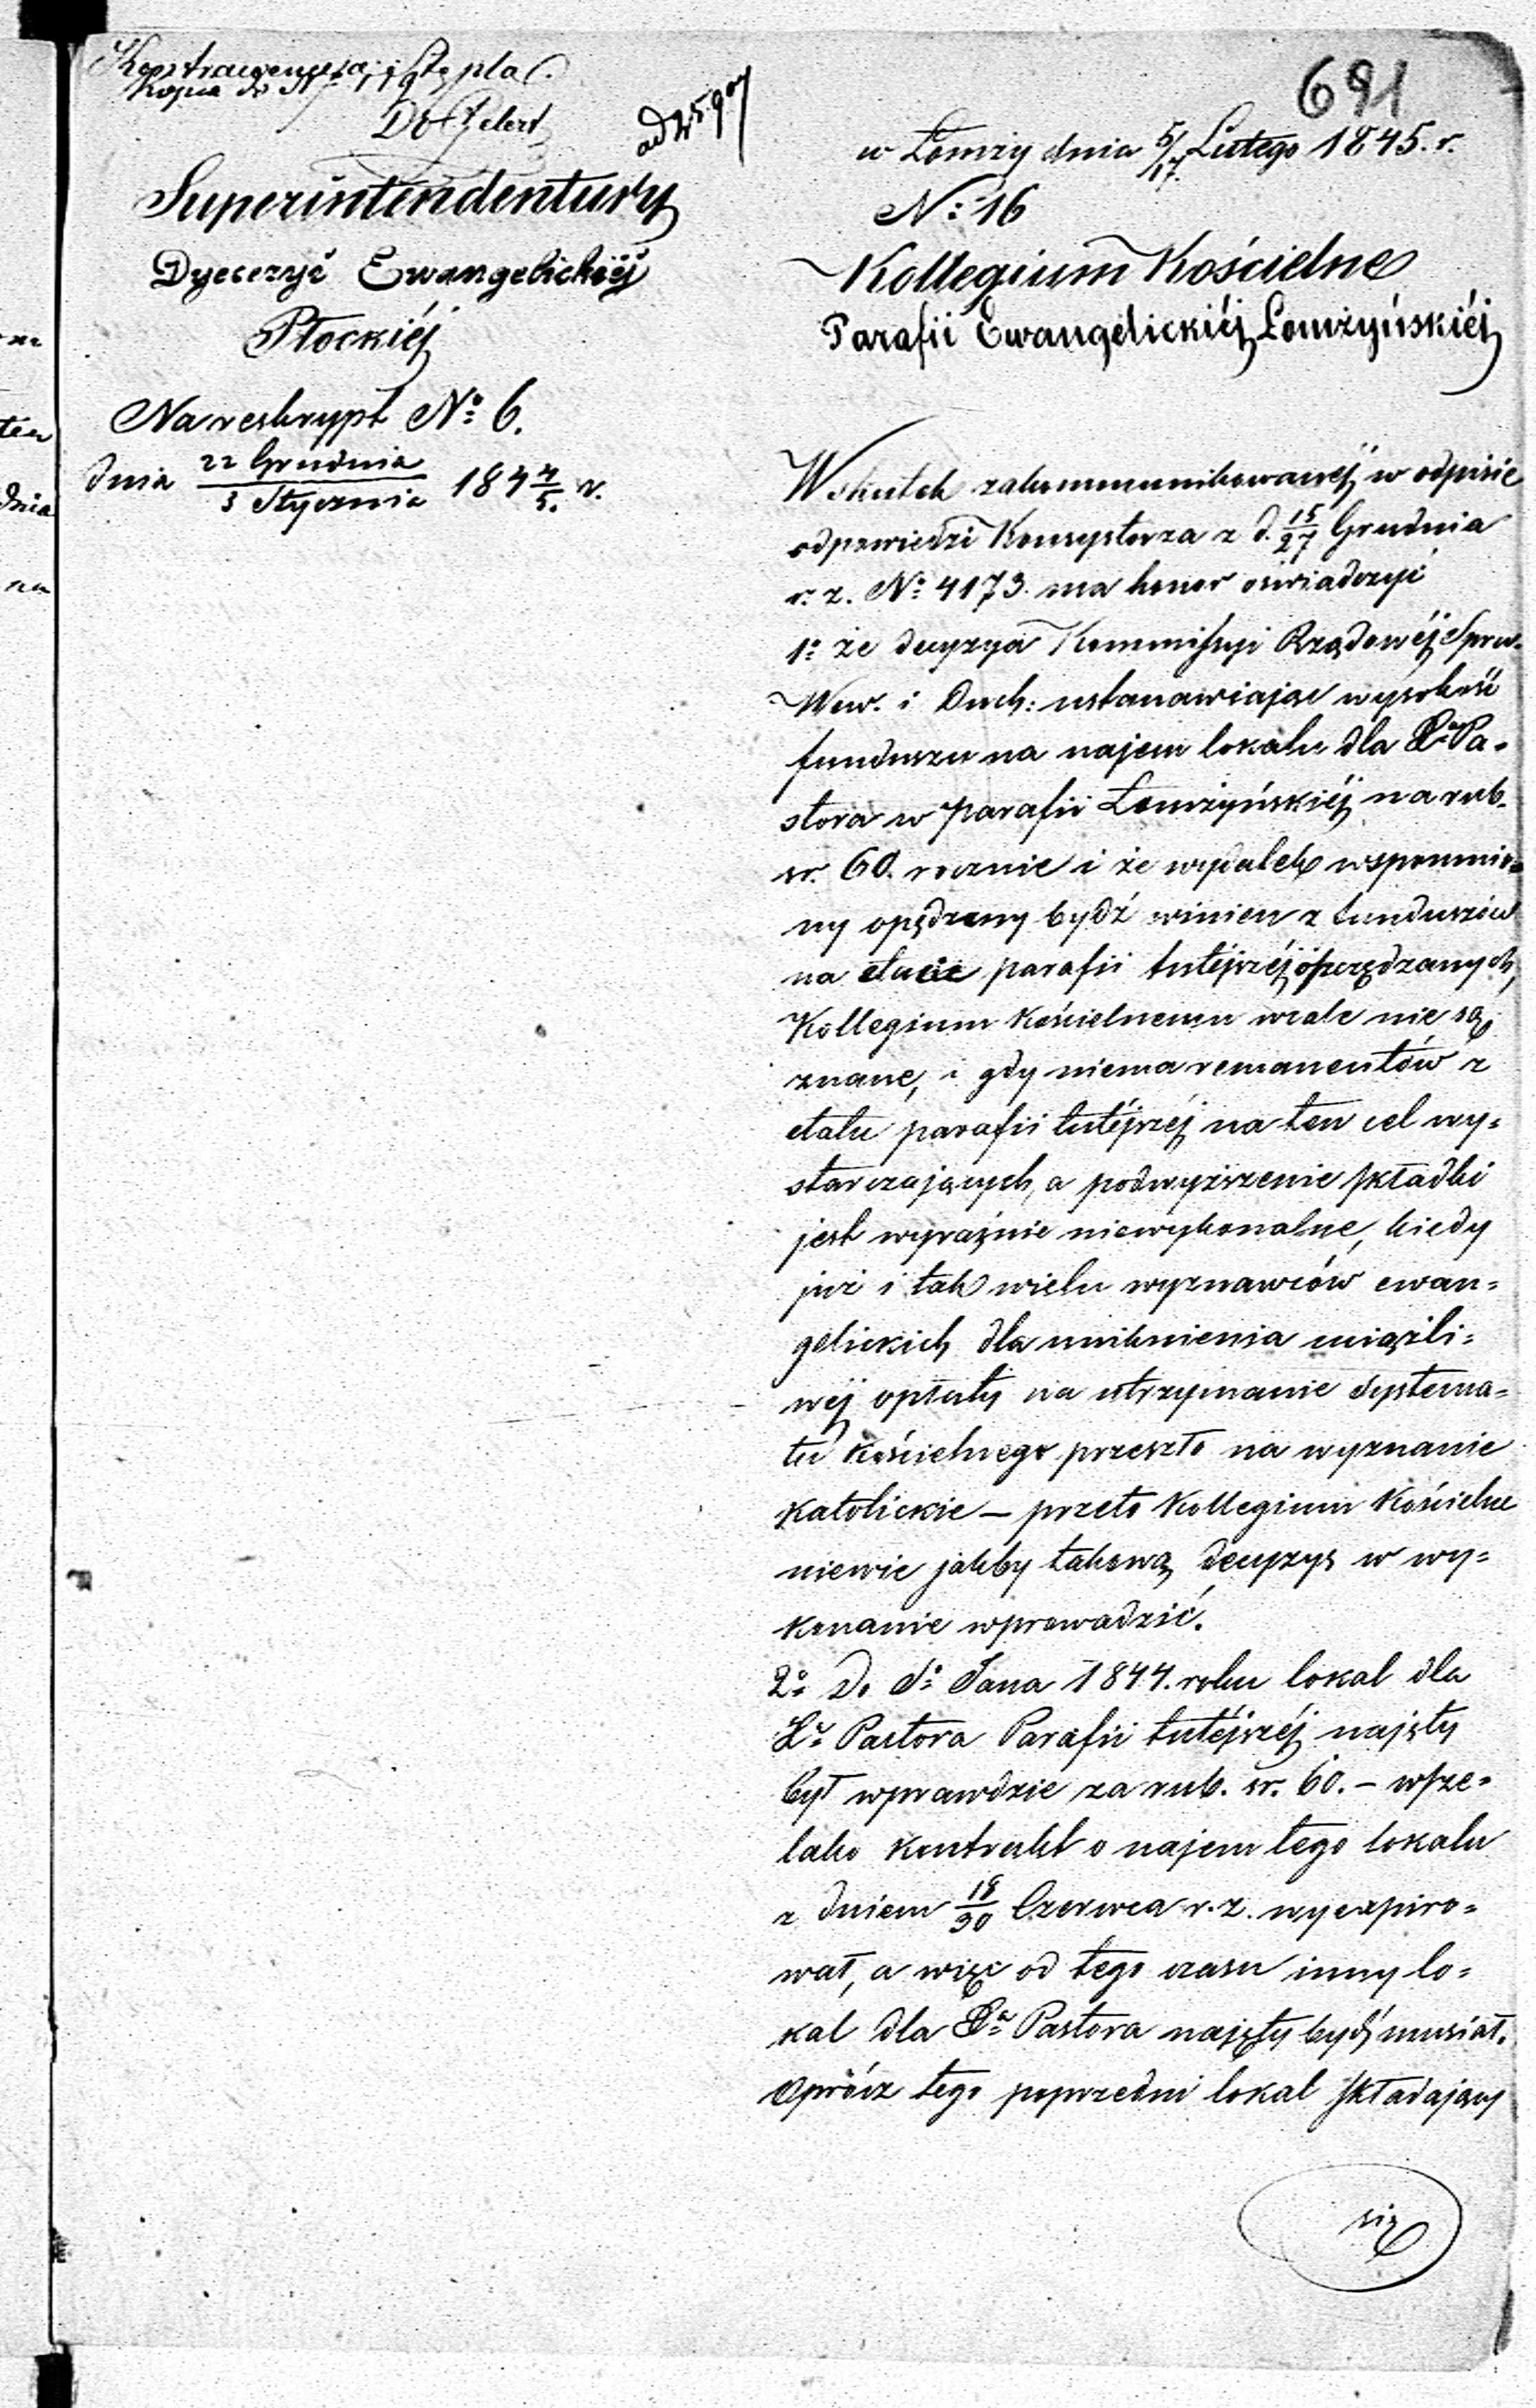 691
w Łomży dnia 5/17 Lutego 1845. r.
No: 16
Kollegium Kościelne
Parafii Ewangelickiéj Łomżyńskiéj
Do
Superintendentury
Dyecezyi Ewangelickiéj
Płockiéj
Na reskrypt No: 6.
dnia 22 Grudnia / 3 Stycznia 184 4/5. r.
W skutek zakommunikowanéj w odpisie
odpowiedzi Konsystorza z d. 15/27 Grudnia
r. z. No: 4173. ma honor oświadczyć
1o: że decyzya Kommissyi Rządowéj Spraw.
Wew. i Duch: ustanawiając wysokość
funduszu na najem lokalu dla Pa=
stora w parafii Łomżyńskiéj na rub.
sr. 60. rocznie i że wydatek wspomnio=
ny opędzony bydź winien z funduszów
na etacie parafii tutéjszéj oszczędzanych,
Kollegium Kościelnemu wcale nie są
znane, i gdy niema remanentów z
etatu parafii tutéjszéj na ten cel wy=
starczających, a podwyższenie składki
jest wyraźnie niewykonalne, kiedy
już i tak wielu wyznawców ewan=
gelickich dla uniknienia uciążli=
wéj opłaty na utrzymanie systema=
tu kościelnego przeszło na wyznanie
katolickie – przeto Kollegium Kościelne
niewie jakby takową decyzyę w wy=
konanie wprowadzić.
2o: Do So: Jana 1844. roku lokal dla
Pastora Parafii tutéjszéj najęty
był wprawdzie za rub. sr. 60. – wsze=
lako kontrakt o najem tego lokalu
z dniem 18/30 Czerwca r. z. wyexpiro=
wał, a więc od tego czasu inny lo=
kal dla Pastora najęty bydź musiał.
Oprócz tego poprzedni lokal składający
się